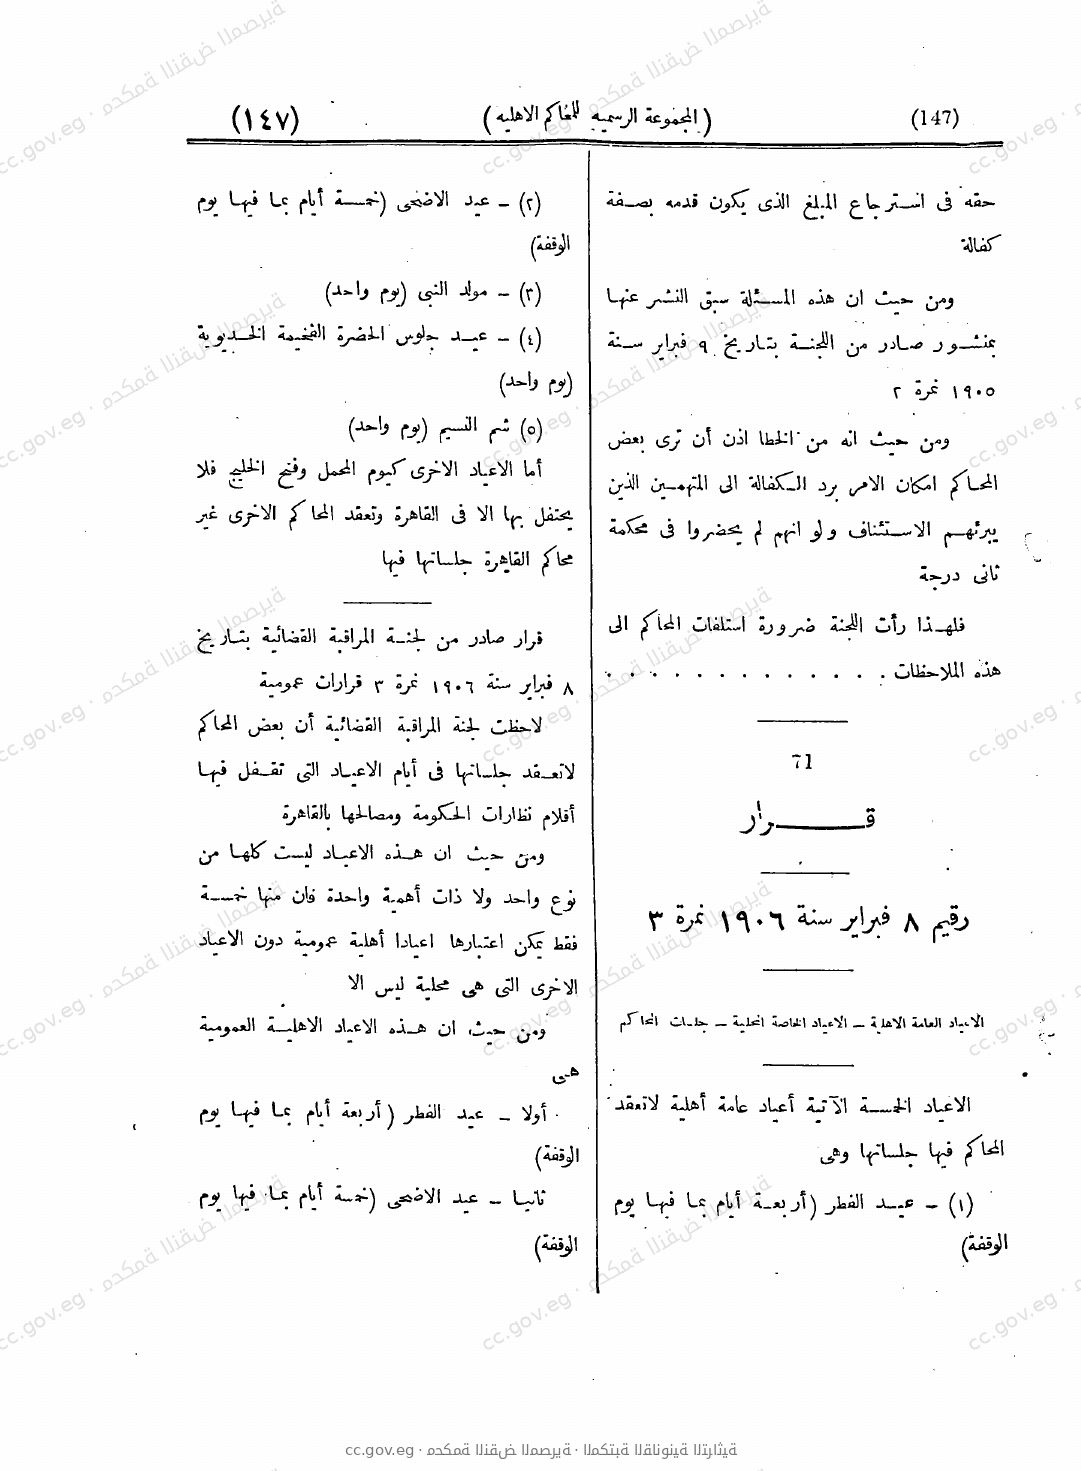 (147)
(المجموعة الرسمية للمحاكم الاهلية)
(١٤٧)
حقه فى استرجاع المبلغ الذى يكون قدمه بصفة
كفالة
ومن حيث ان هذه المسئلة سبق النشر عنها
بمنشور صادر من اللجنة بتاريخ ٩ فبراير سنة
١٩٠٥ نمرة ٢
ومن حيث انه من الخطا اذن أن ترى بعض
المحاكم امكان الامر برد الكفالة الى المتهمين الذين
يبرئهم الاستئناف ولو انهم لم يحضروا فى محكمة
ثانى درجة
فلهذا رأت اللجنة ضرورة استلفات المحاكم الى
هذه الملاحظات . . . . . . . . . . . .
71
قرار
رقيم ٨ فبراير سنة ١٩٠٦ نمرة ٣
الاعياد العامة الاهلية – الاعياد الخاصة المحلية – جلسات المحاكم
الاعياد الخمسة الآتية أعياد عامة أهلية لاتعقد
المحاكم فيها جلساتها وهى
(١) – عيد الفطر (أربعة أيام بما فيها يوم
الوقفة)
(٢) – عيد الاضحى (خمسة أيام بما فيها يوم
الوقفة)
(٣) – مولد النبى (يوم واحد)
(٤) – عيد جلوس الحضرة الفخيمة الخديوية
(يوم واحد)
(٥) شم النسيم (يوم واحد)
أما الاعياد الاخرى كيوم المحمل وفتح الخليج فلا
يحتفل بها الا فى القاهرة وتعقد المحاكم الاخرى غير
محاكم القاهرة جلساتها فيها
قرار صادر من لجنة المراقبة القضائية بتاريخ
٨ فبراير سنة ١٩٠٦ نمرة ٣ قرارات عمومية
لاحظت لجنة المراقبة القضائية أن بعض المحاكم
لاتعقد جلساتها فى أيام الاعياد التى تقفل فيها
أقلام نظارات الحكومة ومصالحها بالقاهرة
ومن حيث ان هذه الاعياد ليست كلها من
نوع واحد ولا ذات أهمية واحدة فان منها خمسة
فقط يمكن اعتبارها اعيادا أهلية عمومية دون الاعياد
الاخرى التى هى محلية ليس الا
ومن حيث ان هذه الاعياد الاهلية العمومية
هى
أولا – عيد الفطر (أربعة أيام بما فيها يوم
الوقفة)
ثانيا – عيد الاضحى (خمسة أيام بما فيها يوم
الوقفة)
cc.gov.eg · محكمة النقض المصرية · المكتبة القانونية التراثية